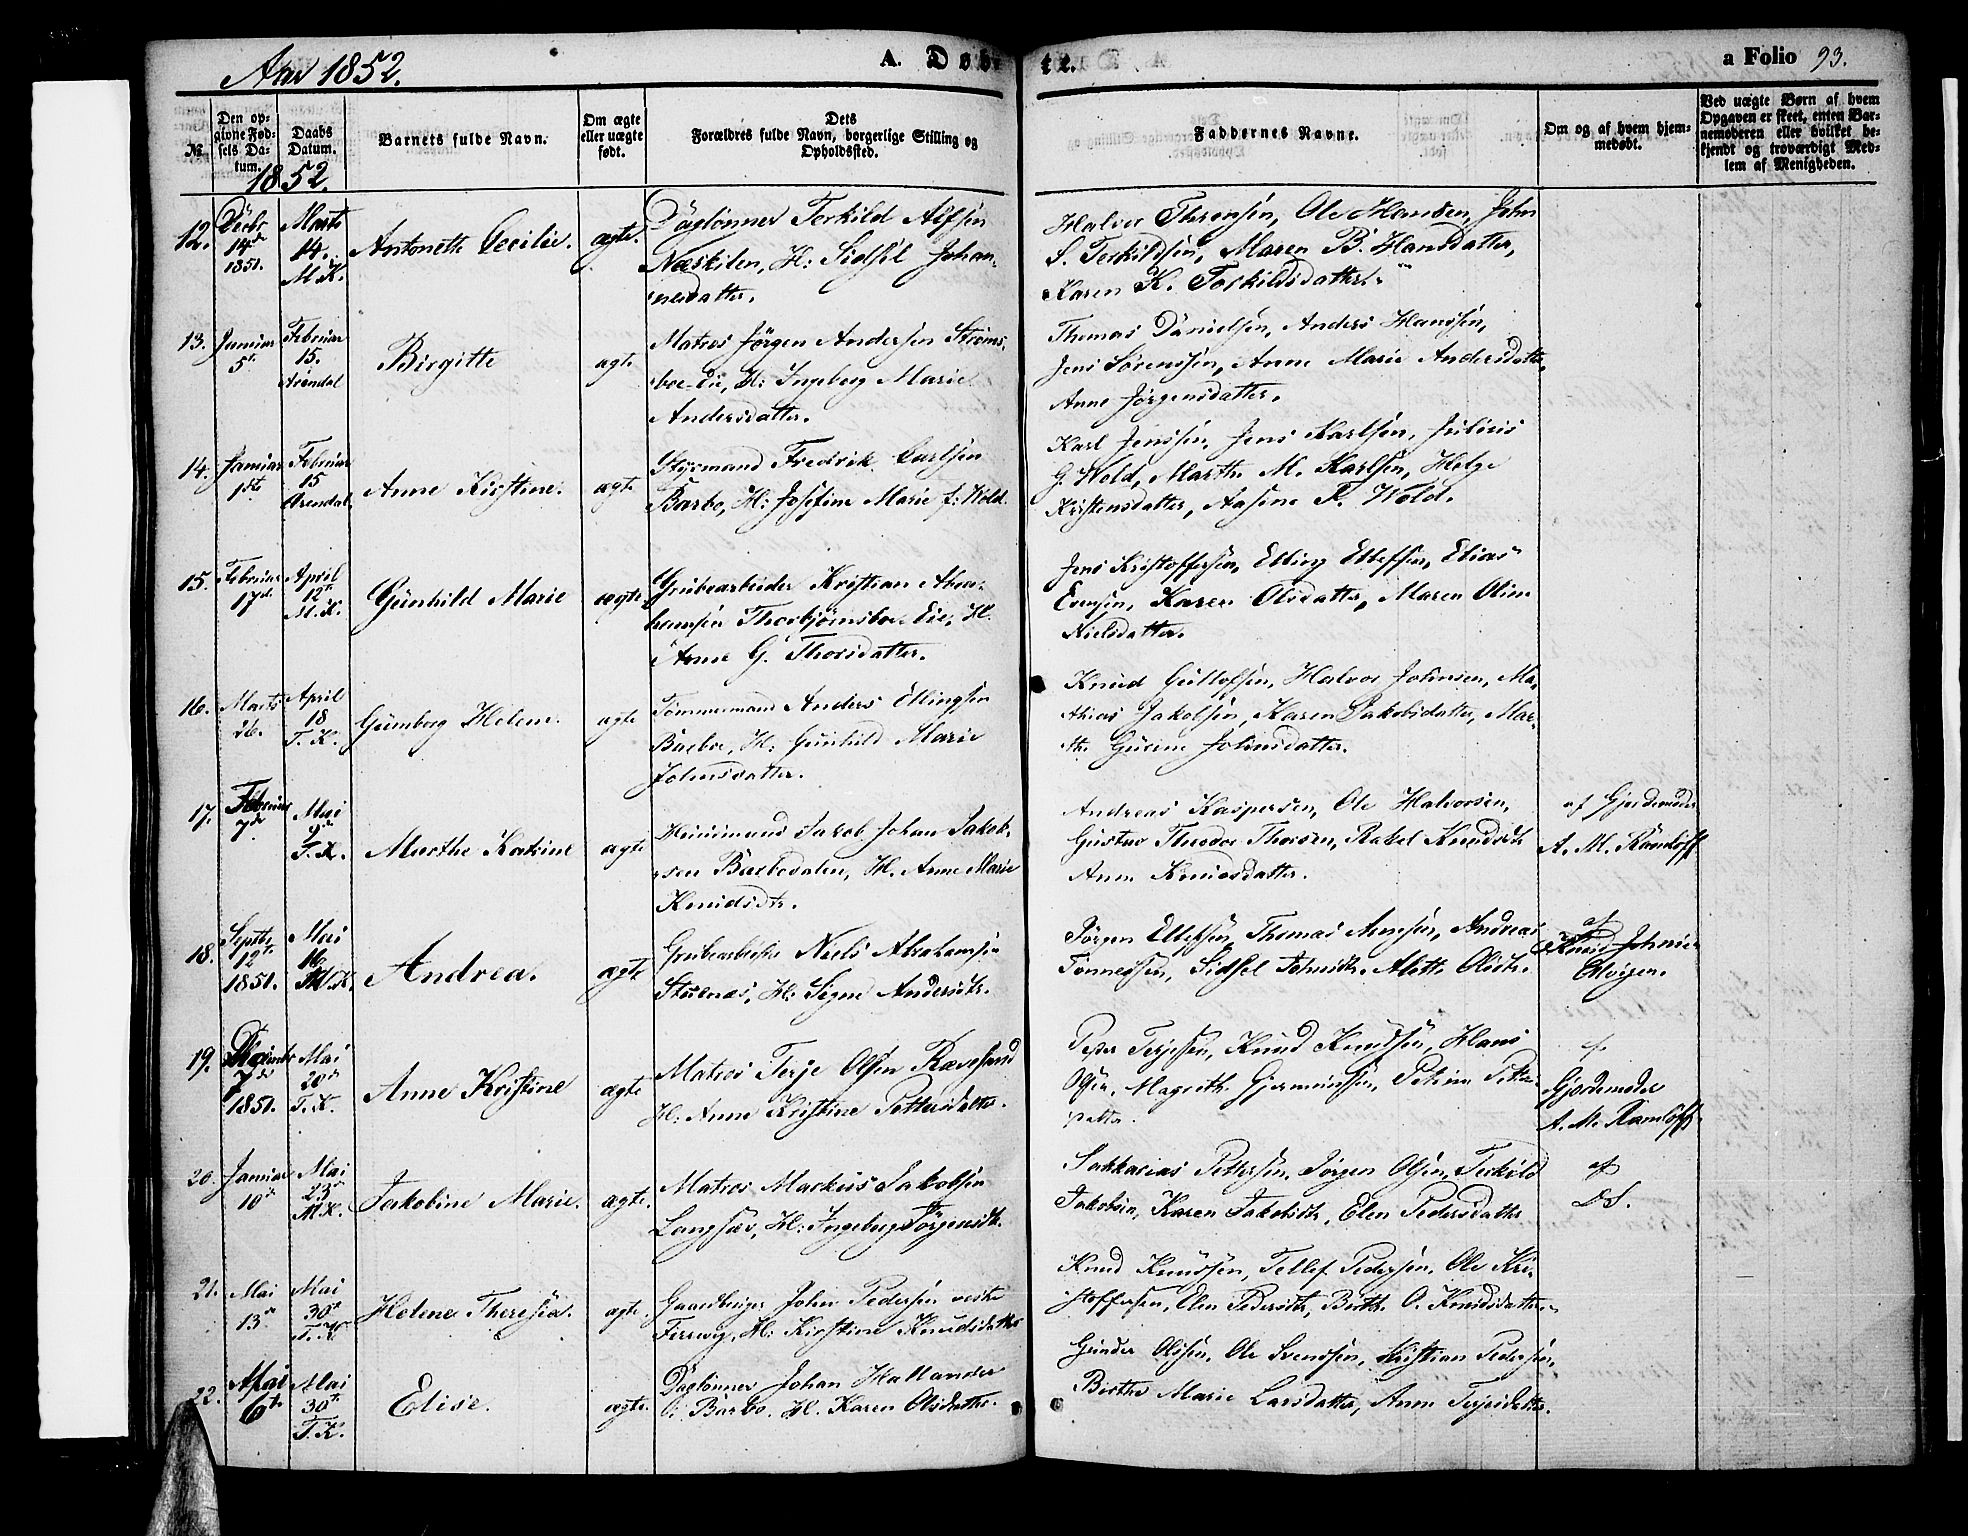 Aar 1852.
A. Døbte.
a Folio 93.
№
Den opgivne Fødsels Datum.
Daabs Datum.
Barnets fulde Navn.
Om ægte eller uægte født.
Dets Forældres fulde Navn, borgerlige Stilling og Opholdssted.
Faddernes Navne.
Om og af hvem hjemmedøbt.
Ved uægte Børn af hvem Opgaven er skeet, enten Barnemoderen eller hvilket bekjendt og troværdigt Medlem af Menigheden.
1852.
12. Decbr 14de 1851. Marts 14. M.K. Antonette Cecilie. ægte.
Daglønner Terkild Alfsen
Næskilen, H: Sidsel Johan-
nesdatter.
Halvor Thrensen, Ole Hansen, John
S. Terkildsen, Maren B. Hansdatter,
Karen K. Torkildsdatter.
13. Januar 5t. Februar 15. Arendal Birgitte ægte
Matros Jørgen Andersen Strøms-
boe-Eie, H: Ingeborg Marie
Andersdatter.
Thomas Danielsen, Anders Hanssen,
Jens Sørenssen, Anne Marie Andersdatter,
Anne Jørgensdatter.
14. Januar 1ste Februar 15 Arendal Anne Kirstine. ægte
Styrmand Fredrik Carlsen
Barbo, H: Josefine Marie f: Wold.
Karl Jenssen, Jens Karlsen, Julius
G. Wold, Marthe M. Karlsen, Helge
Kristensdatter, Aasine F. Wold.
15. Februar 17de April 12te M.K. Gunhild Marie ægte
Grubearbeider Kristian Abra-
hamsen Thorbjørnsboe Eie, H.
Anne G. Thorsdatter.
Jens Kristoffersen, Elling Ellefsen, Elias
Evensen, Karen Olsdatter, Maren Oline
Nielsdatter.
16. Marts 26. April 18 T.K. Gunborg Helene. ægte
Tømmermand Anders Ellingsen
Barboe, H: Gunhild Marie
Johnsdatter.
Knud Gullofsen, Halvor Johnsen, Ma-
thias Jakobsen, Karen Jakobsdatter, Mar-
the Gurine Johnsdatter.
17. Februar 7de Mai 9de T.K. Marthe Katrine ægte
Huusmand Jacob Johan Jakob-
sen Barbodalen, H. Anne Marie
Knudsdtr.
Andreas Kaspersen, Ole Halvorsen,
Gustav Theodor Thorsen, Rakel Knudsdtr
Anne Knudsdatter.
af Gjordemoder
A. M. Ramloff
18. Septbr 12te 1851. Mai 16 M.K. Andrea. ægte
Grubearbeider Niels Abrahamsen
Stuenæs, H: Signe Andersdtr.
Jørgen Ellefsen, Thomas Aensen, Andreas
Tønnessen, Sidsel Johnsdtr. Alette Olsdtr.
af
Knud Johnsen
19. Decembr 7de 1851. Mai 20de T.K. Anne Kristine ægte
Matros Terje Olsen Rævesand
H: Anne Kristine Pettersdatter.
Peder Terjesen, Knud Knudsen, Hans
Olsen, Magrethe Gjermundsen, Petrine Petters-
datter.
af
Gjordemoder
A. M. Ramloff.
20. Januar 10de Mai 23de M.K. Jakobine Marie. ægte.
Matros Markus Jakobsen
Langsæv, H: Ingeborg Jørgensdtr.
Sakkarias Pettersen, Jørgen Olsen, Terkild
Jakobsen, Karen Jakobsdtr, Elen Pedersdatter
af
D.S.
21. Mai 13de Mai 30te T.K. Helene Theresia. ægte.
Gaardbruger John Pedersen vestre
Ferrevig, H: Kirstine Knudsdatter
Knud Knudssen, Tellef Pedersen, Ole Kri-
stoffersen, Elen Pedersdtr, Berthe O. Knudsdatter.
22. Mai 6te Mai 30te T.K. Elise. ægte.
Daglønner Johan Hallander
i Barbo. H. Karen Olsdatter.
Gunder Olsen, Ole Svendsen, Kristian Pedersen,
Birthe Marie Larsdatter, Anne Terjesdatter.